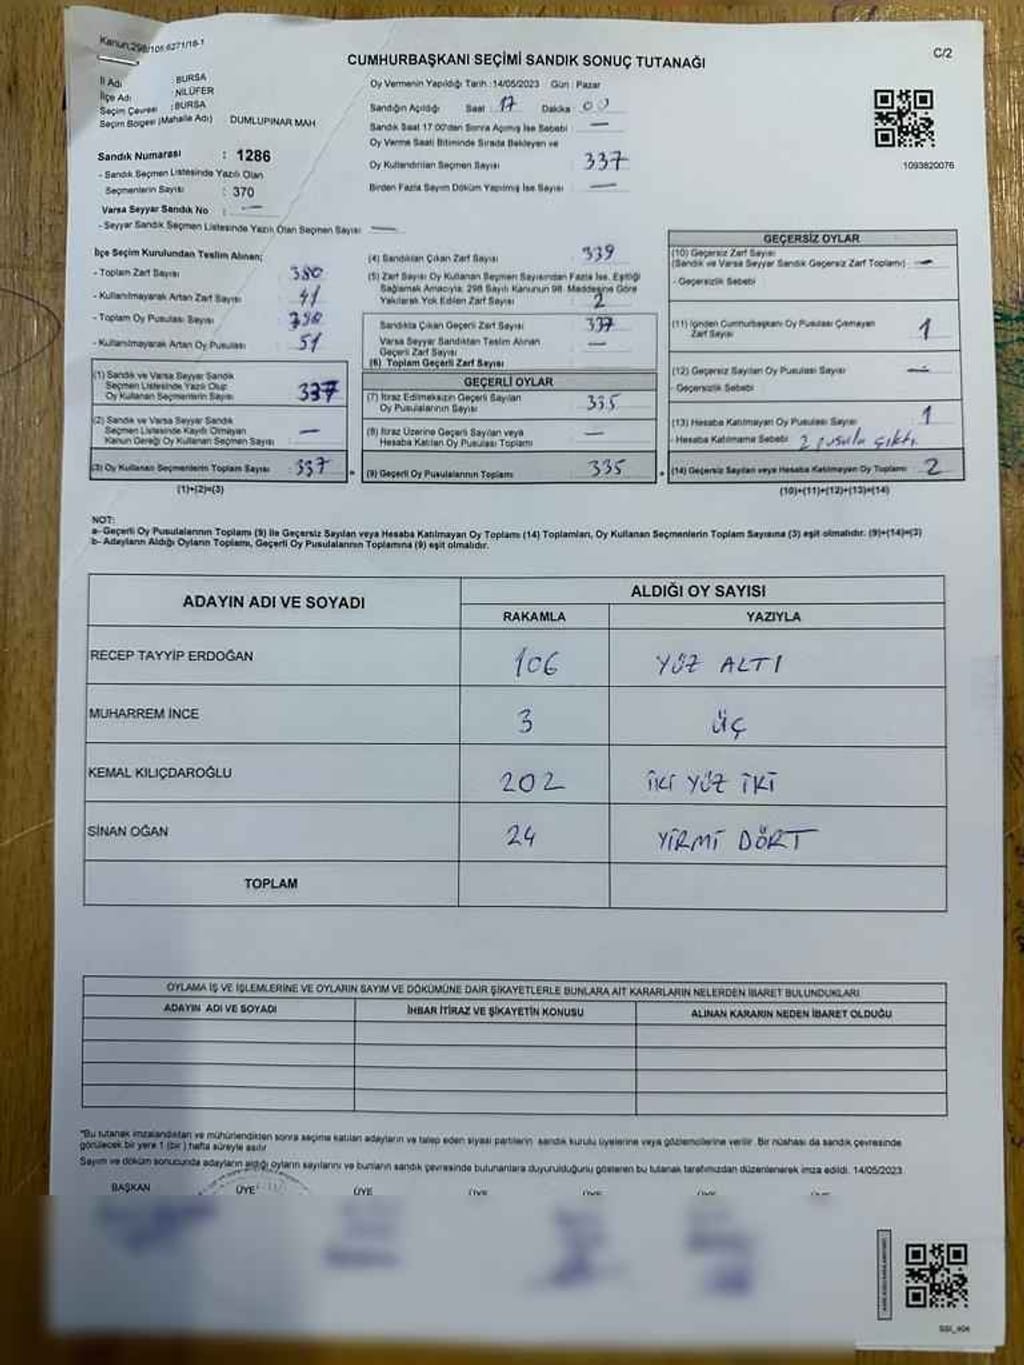 Kanun;298/105;6271/16-1
CUMHURBAŞKANI SEÇİMİ SANDIK SONUÇ TUTANAĞI
C/2
İl Adı : BURSA
İlçe Adı : NİLÜFER
Seçim Çevresi : BURSA
Seçim Bölgesi (Mahalle Adı) DUMLUPINAR MAH
Sandık Numarası : 1286
- Sandık Seçmen Listesinde Yazılı Olan
Seçmenlerin Sayısı : 370
Varsa Seyyar Sandık No : —
- Seyyar Sandık Seçmen Listesinde Yazılı Olan Seçmen Sayısı —
Oy Vermenin Yapıldığı Tarih : 14/05/2023 Gün : Pazar
Sandığın Açıldığı Saat 17 Dakika 00
Sandık Saat 17:00'den Sonra Açılmış İse Sebebi —
Oy Verme Saati Bitiminde Sırada Bekleyen ve
Oy Kullandırılan Seçmen Sayısı 337
Birden Fazla Sayım Döküm Yapılmış İse Sayısı —
1093820076
İlçe Seçim Kurulundan Teslim Alınan;
- Toplam Zarf Sayısı 380
- Kullanılmayarak Artan Zarf Sayısı 41
- Toplam Oy Pusulası Sayısı
- Kullanılmayarak Artan Oy Pusulası 51
(1) Sandık ve Varsa Seyyar Sandık
Seçmen Listesinde Yazılı Olup
Oy Kullanan Seçmenlerin Sayısı 337
(2) Sandık ve Varsa Seyyar Sandık
Seçmen Listesinde Kayıtlı Olmayan
Kanun Gereği Oy Kullanan Seçmen Sayısı —
(3) Oy Kullanan Seçmenlerin Toplam Sayısı 337
(1)+(2)=(3)
(4) Sandıktan Çıkan Zarf Sayısı 339
(5) Zarf Sayısı Oy Kullanan Seçmen Sayısından Fazla İse, Eşitliği
Sağlamak Amacıyla; 298 Sayılı Kanunun 98. Maddesine Göre
Yakılarak Yok Edilen Zarf Sayısı 2
Sandıkta Çıkan Geçerli Zarf Sayısı 337
Varsa Seyyar Sandıktan Teslim Alınan
Geçerli Zarf Sayısı —
(6) Toplam Geçerli Zarf Sayısı
GEÇERLİ OYLAR
(7) İtiraz Edilmeksizin Geçerli Sayılan
Oy Pusulalarının Sayısı 335
(8) İtiraz Üzerine Geçerli Sayılan veya
Hesaba Katılan Oy Pusulası Toplamı —
(9) Geçerli Oy Pusulalarının Toplamı 335
GEÇERSİZ OYLAR
(10) Geçersiz Zarf Sayısı
(Sandık ve Varsa Seyyar Sandık Geçersiz Zarf Toplamı) —
- Geçersizlik Sebebi
(11) İçinden Cumhurbaşkanı Oy Pusulası Çıkmayan
Zarf Sayısı 1
(12) Geçersiz Sayılan Oy Pusulası Sayısı —
- Geçersizlik Sebebi
(13) Hesaba Katılmayan Oy Pusulası Sayısı 1
- Hesaba Katılmama Sebebi 2 pusula çıktı
(14) Geçersiz Sayılan veya Hesaba Katılmayan Oy Toplamı 2
(10)+(11)+(12)+(13)=(14)
NOT:
a- Geçerli Oy Pusulalarının Toplamı (9) ile Geçersiz Sayılan veya Hesaba Katılmayan Oy Toplamı (14) Toplamları, Oy Kullanan Seçmenlerin Toplam Sayısına (3) eşit olmalıdır. (9)+(14)=(3)
b- Adayların Aldığı Oyların Toplamı, Geçerli Oy Pusulalarının Toplamına (9) eşit olmalıdır.
ADAYIN ADI VE SOYADI
ALDIĞI OY SAYISI
RAKAMLA YAZIYLA
RECEP TAYYİP ERDOĞAN 106 YÜZ ALTI
MUHARREM İNCE 3 ÜÇ
KEMAL KILIÇDAROĞLU 202 İKİ YÜZ İKİ
SİNAN OĞAN 24 YİRMİ DÖRT
TOPLAM
OYLAMA İŞ VE İŞLEMLERİNE VE OYLARIN SAYIM VE DÖKÜMÜNE DAİR ŞİKAYETLERLE BUNLARA AİT KARARLARIN NELERDEN İBARET BULUNDUKLARI
ADAYIN ADI VE SOYADI İHBAR İTİRAZ VE ŞİKAYETİN KONUSU ALINAN KARARIN NEDEN İBARET OLDUĞU
*Bu tutanak imzalandıktan ve mühürlendikten sonra seçime katılan adayların ve talep eden siyasi partilerin sandık kurulu üyelerine veya gözlemcilerine verilir. Bir nüshası da sandık çevresinde
görülecek bir yere 1 (bir) hafta süreyle asılır
Sayım ve döküm sonucunda adayların aldığı oyların sayılarını ve bunların sandık çevresinde bulunanlara duyurulduğunu gösteren bu tutanak tarafımızdan düzenlenerek imza edildi. 14/05/2023
BAŞKAN ÜYE ÜYE ÜYE ÜYE ÜYE